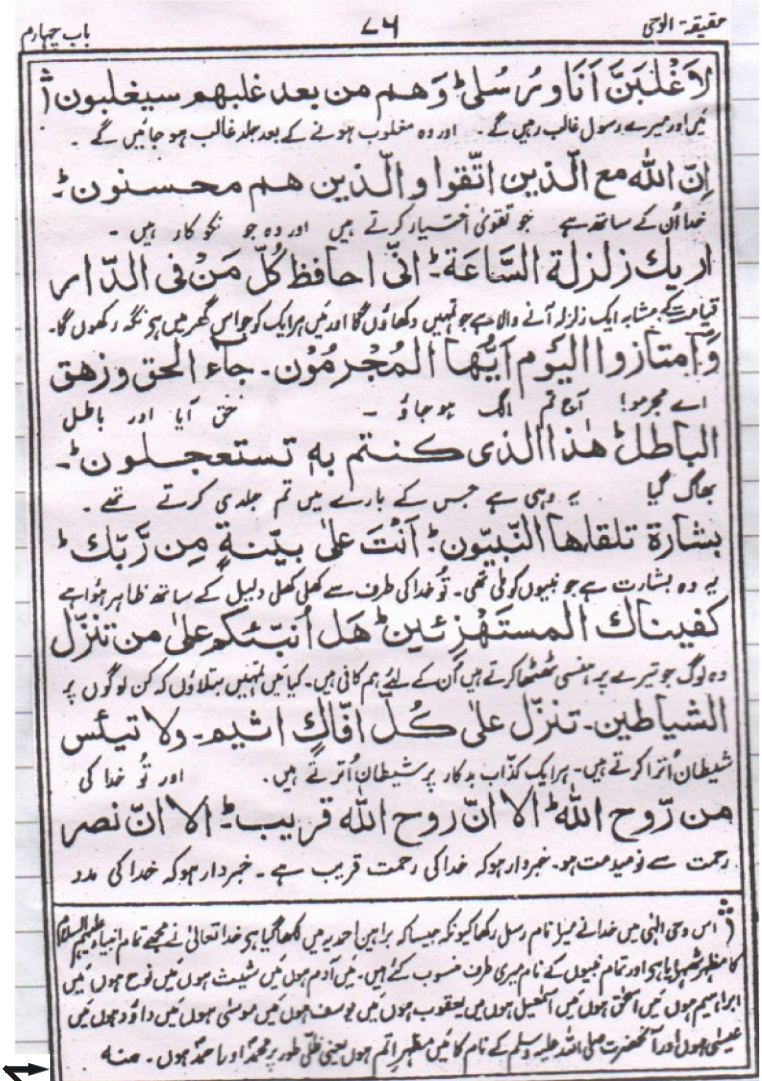 حقیقۃ الوحی ۷۶ باب چہارم
لَاَغْلَبَنَّ اَنَا ورُسُلی؞ وَھم من بعد غلبھم سیغلبون؞
مَیں اور میرے رسول غالب رہیں گے۔ اور وہ مغلوب ہونے کے بعد جلد غالب ہو جائیں گے ۔
اِنّ اللّٰہ مع الّذین اتّقوا والّذین ھم محسنون؞
خدا اُن کے ساتھ ہے جو تقویٰ اختیار کرتے ہیں اور وہ جو نکو کار ہیں ۔
اریك زلزلة السَّاعَة؞ انّی احافظ کُلّ مَنْ فی الدّار
قیامت کے مشابہ ایک زلزلہ آنے والا ہے جو تمہیں دکھاؤں گا اور مَیں ہر ایک کو جو اس گھر میں ہی نگہ رکھوں گا۔
وَامتازوا الیوم اَیُّھا المُجْرِمُوْن۔ جآء الحق وزھق
اے مجرمو! آج تم الگ ہو جاؤ ۔ حق آیا اور باطل
الباطل؞ ھٰذا الذی کنتم بہٖ تستعجلون؞۔
بھاگ گیا یہ وہی ہے جس کے بارے میں تم جلدی کرتے تھے ۔
بشارة تلقاھا النّبیّون؞ اَنْتَ علیٰ بیّنةٍ مِن رَّبّك؞
یہ وہ بشارت ہے جو نبیوں کو ملی تھی۔ تُو خدا کی طرف سے کھلی کھلی دلیل کے ساتھ ظاہر ہؤا ہے
کفیناك المستَھْزِئین؞ ھَل اُنَبّئکم علیٰ من تنزّل
وہ لوگ جو تیرے پر ہنسی ٹھٹھا کرتے ہیں اُن کے لئے ہم کافی ہیں۔ کیا مَیں تمہیں بتلاؤں کہ کن لوگوں پر
الشیاطین۔ تنزّل علیٰ کُلّ افّاكٍ اثیم۔ ولا تیئس
شیطان اُترا کرتے ہیں۔ ہر ایک کذّاب بدکار پر شیطان اُترتے ہیں۔ اور تُو خدا کی
من رّوح اللّٰہ؞ الا انّ روح اللّٰہ قریب؞۔ الا انّ نصر
رحمت سے نومید مت ہو۔ خبردار ہو کہ خدا کی رحمت قریب ہے ۔ خبردار ہو کہ خدا کی مدد
؞ اس وحی الٰہی میں خدا نے میرا نام رسل رکھا کیونکہ جیسا کہ براہین احمدیہ میں لکھا گیا ہی خدا تعالیٰ نے مجھے تمام انبیاء علیہم السلام
کا مظہر ٹھہرایا ہی اور تمام نبیوں کے نام میری طرف منسوب کئے ہیں۔ مَیں آدم ہوں مَیں شیث ہوں مَیں نوح ہوں مَیں
ابراہیم ہوں مَیں اسحٰق ہوں مَیں اسمٰعیل ہوں میں یعقوب ہوں مَیں یوسف ہوں مَیں موسٰی ہوں مَیں داؤد ہوں مَیں
عیسٰی ہوں اور آنحضرت صلی اللہ علیہ وسلم کے نام کا مَیں مظہر اتم ہوں یعنی ظلّی طور پر محمدؐ اور احمدؐ ہوں ۔ منہ